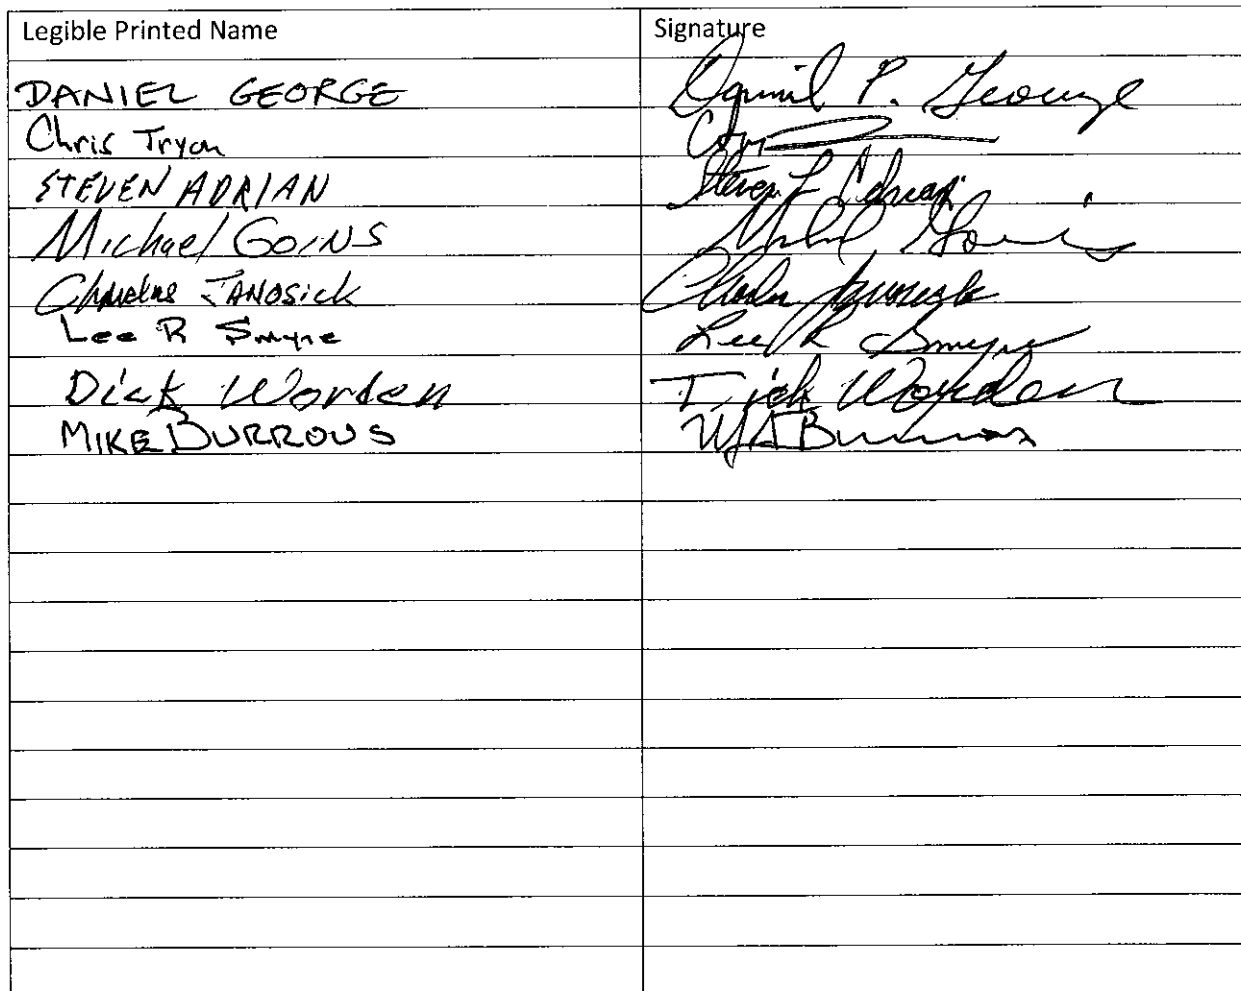 Legible Printed Name Signature
DANIEL GEORGE Daniel P. George
Chris Tryon
STEVEN ADRIAN Steven L Adrian
Michael GOINS Michael Goins
JANOSICK
Lee R Smyre Lee R Smyre
Dick Worden Dick Worden
MIKE BURROUS MA Burrous